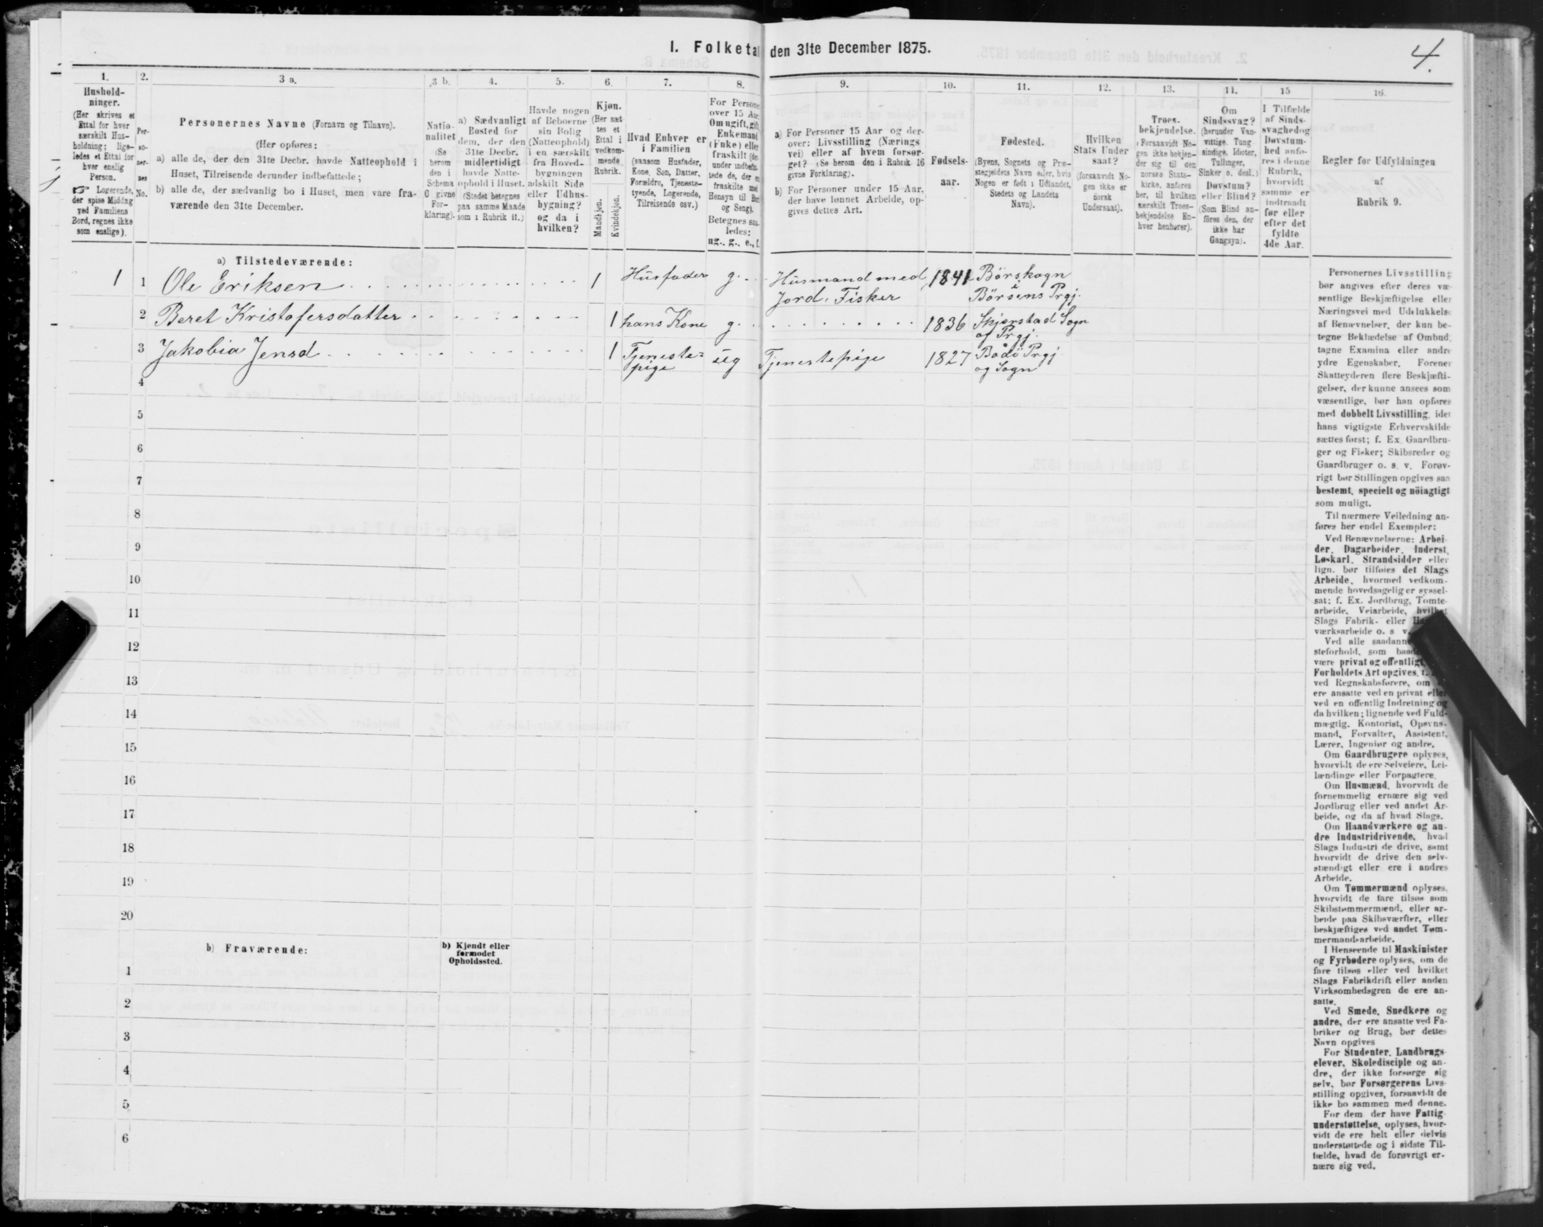 I. Folketal den 31te December 1875.
4.
1.
Hushold-
ninger.
(Her skrives et
Ettal for hver
særskilt Hus-
holdning; lige-
ledes et Ettal for
hver enslig
Person.
☞ Logerende,
der spise Middag
ved Familiens
Bord, regnes ikke
som enslige).
2.
Per-
so-
ner-
nes
No.
3 a.
Personernes Navne (Fornavn og Tilnavn).
(Her opføres:
a) alle de, der den 31te Decbr. havde Natteophold i
Huset, Tilreisende derunder indbefattede;
b) alle de, der sædvanlig bo i Huset, men vare fra-
værende den 31te December.
3 b.
Natio-
nalitet
(Se
herom
den i
Schema
O givne
For-
klaring).
4.
a) Sædvanligt
Bosted for
dem, der den
31te Decbr.
midlertidigt
havde Natte-
ophold i Huset.
(Stedet betegnes
paa samme Maade
som i Rubrik 11.)
5.
Havde nogen
af Beboerne
sin Bolig
(Natteophold)
i en særskilt
fra Hoved-
bygningen
adskilt Side
eller Udhus-
bygning?
og da i
hvilken?
6.
Kjøn.
(Her sæt
tes et
Ettal i
vedkom-
mende
Rubrik.
Mandkjøn.
Kvindekjøn.
7.
Hvad Enhver er
i Familien
(saasom Husfader,
Kone, Søn, Datter,
Forældre, Tjeneste-
tyende, Logerende,
Tilreisende osv.)
8.
For Personer
over 15 Aar
Om ugift, gift,
Enkemand
(Enke) eller
fraskilt
Betegnes saa-
ledes:
ug., g., e., f.
9.
a) For Personer 15 Aar og der-
over: Livsstilling (Nærings
vei) eller af hvem forsør-
get? (Se herom den i Rubrik 16
givne Forklaring).
b) For Personer under 15 Aar,
der have lønnet Arbeide, op-
gives dettes Art.
10.
Fødsels-
aar.
11.
Fødested.
(Byens, Sognets og Præ-
stegjeldets Navn eller, hvis
Nogen er født i Udlandet,
Stedets og Landets
Navn).
12.
Hvilken
Stats Under
saat?
(forsaavidt No-
gen ikke er
norsk
Undersaat).
13.
Troes-
bekjendelse.
(Forsaavidt No-
gen ikke bekjen-
der sig til den
norske Stats-
kirke, anføres
her, til hvilken
særskilt Troes-
bekjendelse En-
hver henhører).
14.
Om
Sindssvag?
(herunder Van-
vittige, Tung-
sindige, Idioter,
Tullinger,
Sinker o. desl.)
Døvstum?
eller Blind?
(Som Blind an-
føres den, der
ikke har
Gangsyn).
15
I Tilfælde
af Sinds-
svaghed og
Døvstum-
hed anfø-
res i denne
Rubrik,
hvorvidt
samme er
indtraadt
før eller
efter det
fyldte
4de Aar.
16.
Regler for Udfyldningen
af
Rubrik 9.
a) Tilstedeværende:
1 1 Ole Eriksen 1 Husfader g. Husmand med Jord, Fisker 1841 Børskogn i Børsens Prgj.
2 Beret Kristofersdatter 1 hans Kone g. 1836 Skjerstad Sogn af Prgj.
3 Jakobia Jensd 1 Tjeneste-pige ug Tjenestepige 1827 Bodö Prgj og Sogn
4
5
6
7
8
9
10
11
12
13
14
15
16
17
18
19
20
b) Fraværende:
b) Kjendt eller
formodet
Opholdssted.
1
2
3
4
5
6
Personernes Livsstilling
bør angives efter deres væ-
sentlige Beskjæftigelse eller
Næringsvei med Udelukkelse
af Benævnelser, der kun be-
tegne Beklædelse af Ombud,
tagne Examina eller andre
ydre Egenskaber. Forener
Skatteyderen flere Beskjæfti-
gelser, der kunne ansees som
væsentlige, bør han opføres
med dobbelt Livsstilling, idet
hans vigtigste Erhvervskilde
sættes først; f. Ex. Gaardbru-
ger og Fisker; Skibsreder og
Gaardbruger o. s. v. Forøv-
rigt bør Stillingen opgives saa
bestemt, specielt og nöiagtigt
som muligt.
Til nærmere Veiledning an-
føres her endel Exempler:
Ved Benævnelserne: Arbei-
der, Dagarbeider, Inderst,
Løskarl, Strandsidder eller
lign. bør tilføies det Slags
Arbeide, hvormed vedkom-
mende hovedsagelig er syssel-
sat; f. Ex. Jordbrug, Tomte-
arbeide, Veiarbeide, hvilket
Slags Fabrik- eller
værksarbeide o. s. v.
Ved alle saadanne
steforhold, som
være privat og offentlig
Forholdets Art opgives,
ved Regnskabsførere, om
ere ansatte ved en privat eller
ved en offentlig Indretning og
da hvilken; lignende ved Fuld-
mægtig, Kontorist, Opsyns-
mand, Forvalter, Assistent,
Lærer, Ingeniør og andre.
Om Gaardbrugere oplyses,
hvorvidt de ere Selveiere, Lei-
lændinge eller Forpagtere.
Om Husmænd, hvorvidt de
fornemmelig ernære sig ved
Jordbrug eller ved andet Ar-
beide, og da af hvad Slags.
Om Haandværkere og an-
dre Industridrivende, hvad
Slags Industri de drive, samt
hvorvidt de drive den selv-
stændigt eller ere i andres
Arbeide.
Om Tømmermænd oplyses,
hvorvidt de fare tilsøs som
Skibstømmermænd, eller ar-
beide paa Skibsværfter, eller
beskjæftiges ved andet Tøm-
mermandsarbeide.
I Henseende til Maskinister
og Fyrbødere oplyses, om de
fare tilsøs eller ved hvilket
Slags Fabrikdrift eller anden
Virksomhedsgren de ere an-
satte.
Ved Smede, Snedkere og
andre, der ere ansatte ved Fa-
briker og Brug, bør dettes
Navn opgives
For Studenter, Landbrugs-
elever, Skoledisciple og an-
dre, der ikke forsørge sig
selv, bør Forsørgerens Livs-
stilling opgives, forsaavidt de
ikke bo sammen med denne.
For dem der have Fattig-
understøttelse, oplyses, hvor-
vidt de ere helt eller delvis
understøttede og i sidste Til-
fælde, hvad de forøvrigt er-
nære sig ved.